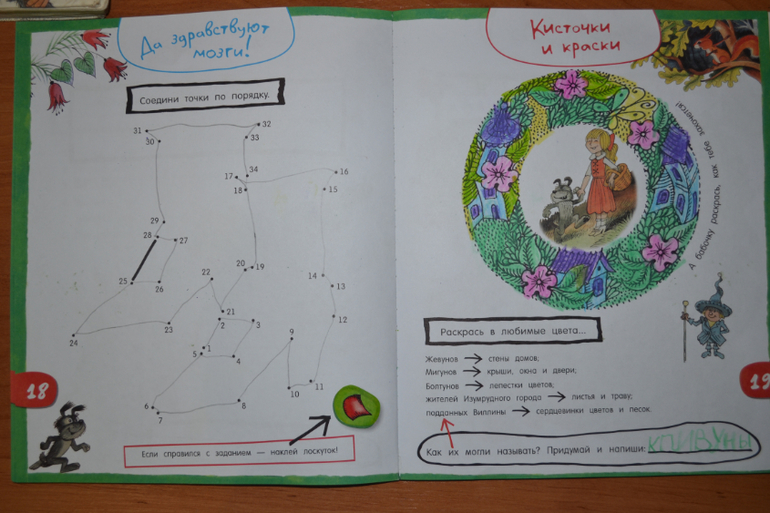 Да здравствуют
мозги!
Соедини точки по порядку.
31
32
30
33
34
17
16
18
15
29
28
27
20
19
22
14
25
26
13
21
2
3
12
23
24
9
1
5
4
6
7
8
10
11
18
Если справился с заданием — наклей лоскуток!
Кисточки
и краски
А бабочку раскрась, как тебе захочется!
Раскрась в любимые цвета...
Жевунов → стены домов;
Мигунов → крыши, окна и двери;
Болтунов → лепестки цветов;
жителей Изумрудного города → листья и траву;
подданных Виллины → сердцевинки цветов и песок.
Как их могли называть? Придумай и напиши: КЛИВУНЫ
19